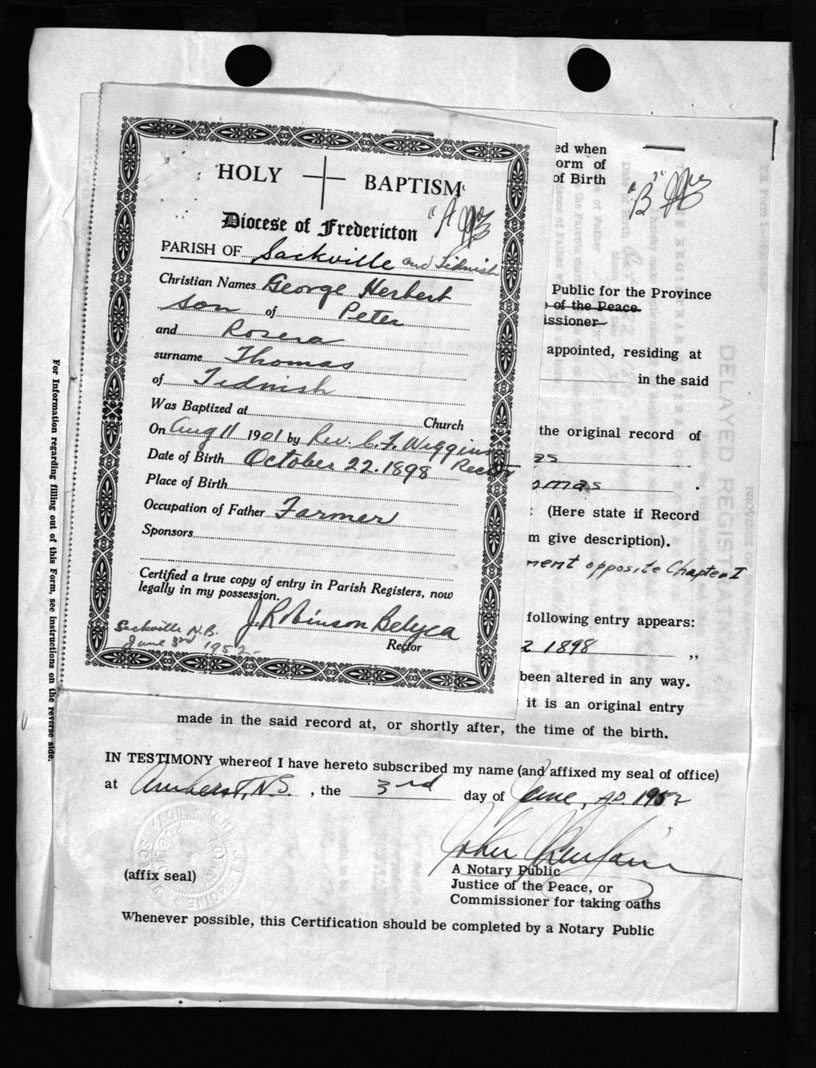 HOLY BAPTISM
"A"
Diocese of Fredericton
PARISH OF Sackville and Tidnish
Christian Names George Herbert
son of Peter
and Rosera
surname Thomas
of Tidnish
Was Baptized at Church
On Aug 11 1901 by Rev. C. F. Wiggins
Rector
Date of Birth October 22. 1898
Place of Birth
Occupation of Father Farmer
Sponsors
Certified a true copy of entry in Parish Registers, now
legally in my possession.
J. Robinson Belyea
Rector
Sackville N.B.
June 3rd 1952
ed when
orm of
of Birth
"B"
Public for the Province
of the Peace
issioner
appointed, residing at
in the said
the original record of
as
omas .
: (Here state if Record
m give description).
ment opposite Chapter I
following entry appears:
2 1898 ,,
been altered in any way.
it is an original entry
made in the said record at, or shortly after, the time of the birth.
IN TESTIMONY whereof I have hereto subscribed my name (and affixed my seal of office)
at Amherst, N.S. , the 3rd day of June, A.D. 1952
(affix seal)
A Notary Public
Justice of the Peace, or
Commissioner for taking oaths
Whenever possible, this Certification should be completed by a Notary Public
For Information regarding filling out of this Form, see instructions on the reverse side.
DELAYED REGISTRA